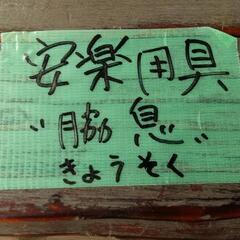 安楽用具
"脇息"
きょうそく